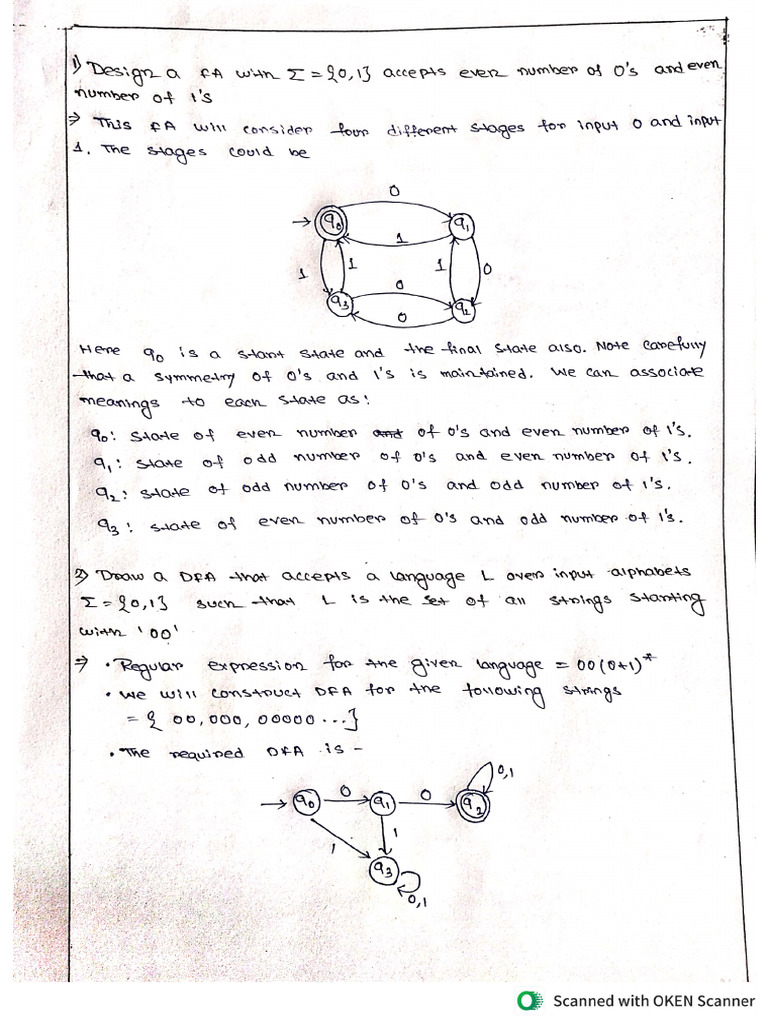 1) Design a FA with Σ = {0,1} accepts even number of 0's and even
number of 1's
⇒ This FA will consider four different stages for input 0 and input
1. The stages could be
0
→ q0 q1
1
1 1 1 0
0
q3 q2
0
Here q0 is a start state and the final state also. Note carefully
that a symmetry of 0's and 1's is maintained. We can associate
meanings to each state as:
q0: state of even number and of 0's and even number of 1's.
q1: state of odd number of 0's and even number of 1's.
q2: state of odd number of 0's and odd number of 1's.
q3: state of even number of 0's and odd number of 1's.
2) Draw a DFA that accepts a language L over input alphabets
Σ = {0,1} such that L is the set of all strings starting
with '00'
⇒ • Regular expression for the given language = 00(0+1)*
• We will construct DFA for the following strings
= { 00,000,00000 ...}
• The required DFA is -
0,1
→ q0 0 q1 0 q2
1 1
q3
0,1
Scanned with OKEN Scanner